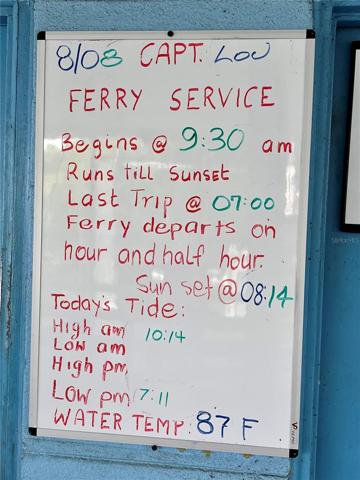 8/08 CAPT. LOU
FERRY SERVICE
Begins @ 9:30 am
Runs till Sunset
Last Trip @ 07:00
Ferry departs on
hour and half hour.
Sun set @ 08:14
Today's Tide:
High am 10:14
Low am
High pm
Low pm 7:11
WATER TEMP: 87 F